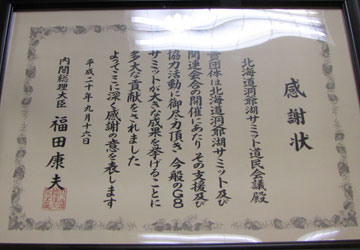 感謝状
北海道洞爺湖サミット道民会議殿
貴団体は北海道洞爺湖サミット及び
関連会合の開催にあたり その支援及び
協力活動に御尽力頂き 今般のG8
サミットが大きな成果を挙げることに
多大な貢献をされました
よってここに深く感謝の意を表します
平成二十年九月十六日
内閣総理大臣 福田康夫